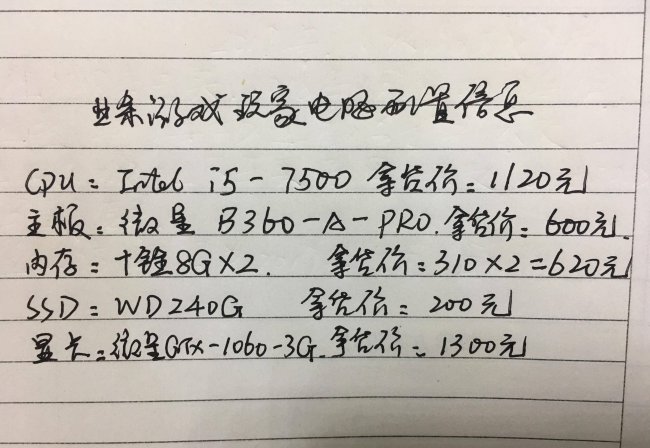 业余游戏玩家电脑配置信息
CPU：Intel i5-7500 拿货价：1120元
主板：微星 B360-A-PRO. 拿货价：600元.
内存：十铨8G×2. 拿货价：310×2=620元
SSD：WD240G 拿货价：200元
显卡：微星GTX-1060-3G. 拿货价：1300元